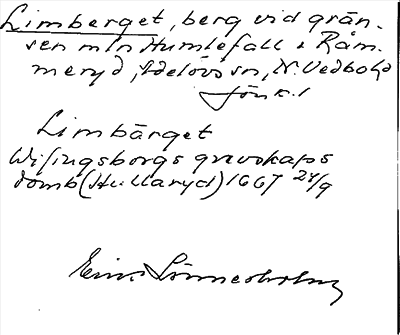 Limberget, berg vid grän-
sen mln Humlefall & Råm-
meryd, Adelövs sn, N. Vedbo hd
Jönk. l
Limbärget
Wisingsborgs grevskaps
domb (Hullaryd) 1667 24/9